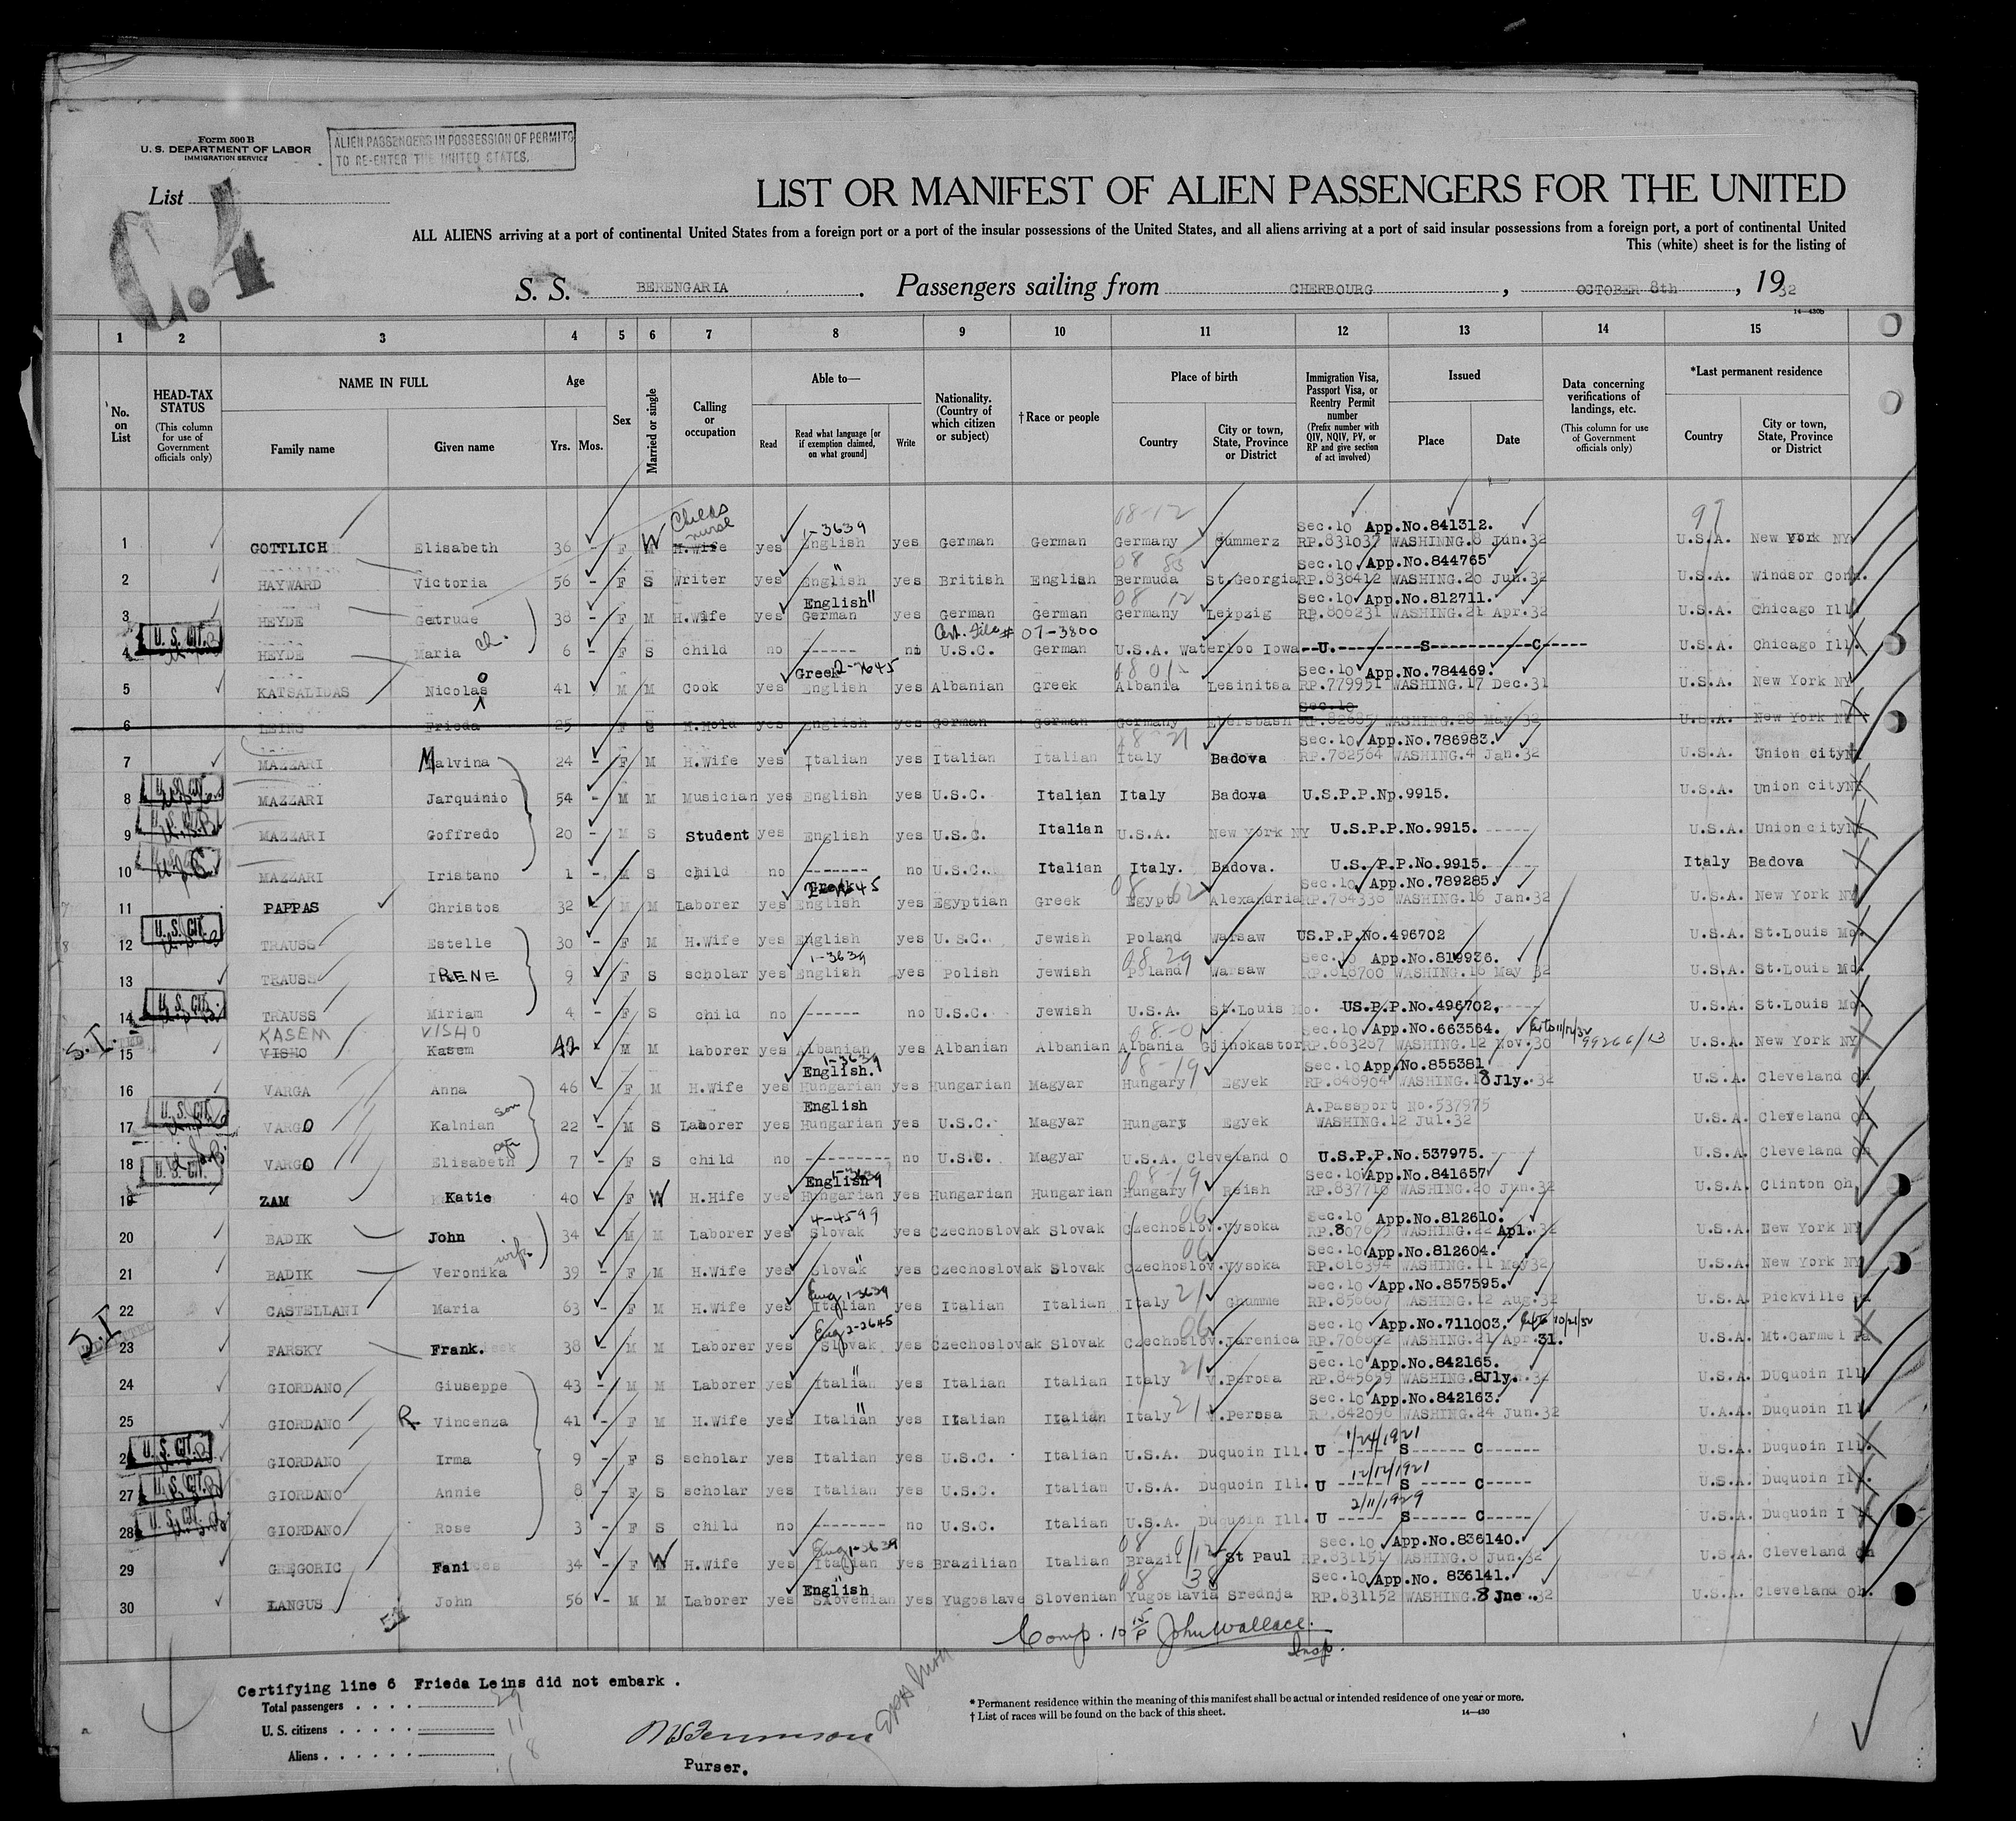 Form 500 B
U. S. DEPARTMENT OF LABOR
IMMIGRATION SERVICE
ALIEN PASSENGERS IN POSSESSION OF PERMITS
TO RE-ENTER THE UNITED STATES.
List
C.4
LIST OR MANIFEST OF ALIEN PASSENGERS FOR THE UNITED
ALL ALIENS arriving at a port of continental United States from a foreign port or a port of the insular possessions of the United States, and all aliens arriving at a port of said insular possessions from a foreign port, a port of continental United
This (white) sheet is for the listing of
S. S. BERENGARIA . Passengers sailing from CHERBOURG , OCTOBER 8th , 1932
14—430b
1 2 3 4 5 6 7 8 9 10 11 12 13 14 15
No. on List
HEAD-TAX STATUS (This column for use of Government officials only)
NAME IN FULL Family name Given name
Age Yrs. Mos.
Sex
Married or single
Calling or occupation
Able to— Read Read what language [or if exemption claimed, on what ground] Write
Nationality. (Country of which citizen or subject)
† Race or people
Place of birth Country City or town, State, Province or District
Immigration Visa, Passport Visa, or Reentry Permit number (Prefix number with QIV, NQIV, PV, or RP and give section of act involved)
Issued Place Date
Data concerning verifications of landings, etc. (This column for use of Government officials only)
*Last permanent residence Country City or town, State, Province or District
Childs nurse 1-3639 08-12 Sec.10 App.No.841312. 97
1 GOTTLICH Elisabeth 36 - F W H.Wife yes English yes German German Germany Gummerz RP.831037 WASHINNG.8 Jun.32 U.S.A. New York NY
" 08 83 Sec.10 App.No.844765
2 HAYWARD Victoria 56 - F S Writer yes English yes British English Bermuda St.Georgia RP.838412 WASHING.20 Jun.32 U.S.A. Windsor Conn.
English " 08 12 Sec.10 App.No.812711.
3 HEYDE Getrude 38 - F M H.Wife yes German yes German German Germany Leipzig RP.806231 WASHING.21 Apr.32 U.S.A. Chicago Ill
U. S. CIT. Cert. File # 07-3800
4 HEYDE Maria ch. 6 - F S child no ------ no U.S.C. German U.S.A. Waterloo Iowa--U.----------S-----------C----- U.S.A. Chicago Ill.
Greek 2-2645 08 01 Sec.10 App.No.784469.
5 KATSALIDAS Nicolaos 41 M M Cook yes English yes Albanian Greek Albania Lesinitsa RP.779951 WASHING.17 Dec.31 U.S.A. New York NY
Sec.10
6 LEINS Frieda 25 F S H.Hold yes English yes German German Germany RP.82685 WASHING.28 May 32 U.S.A. New York NY
08-21 Sec.10 App.No.786983.
7 MAZZARI Malvina 24 - F M H.Wife yes Italian yes Italian Italian Italy Badova RP.782564 WASHING.4 Jan.32 U.S.A. Union city NY
U. S. CIT.
8 MAZZARI Jarquinio 54 - M M Musician yes English yes U.S.C. Italian Italy Badova U.S.P.P.Np.9915. U.S.A. Union city NY
9 MAZZARI Goffredo 20 - M S Student yes English yes U.S.C. Italian U.S.A. New York NY U.S.P.P.No.9915. ----- U.S.A. Union city NY
10 MAZZARI Iristano 1 - M S child no ------- no U.S.C. Italian Italy. Badova. U.S.P.P.No.9915. Italy Badova
Greek 08 62 Sec.10 App.No.789285.
11 PAPPAS Christos 32 - M M Laborer yes English yes Egyptian Greek Egypt Alexandria RP.784338 WASHING.16 Jan.32 U.S.A. New York NY
U. S. CIT.
12 TRAUSS Estelle 30 - F M H.Wife yes English yes U.S.C. Jewish Poland Warsaw US.P.P.No.496702 U.S.A. St.Louis Mo.
1-3639 08 29 Sec.10 App.No.819936.
13 TRAUSS IRENE 9 F S scholar yes English yes Polish Jewish Poland Warsaw RP.818700 WASHING.16 May 32 U.S.A. St.Louis Mo.
U. S. CIT.
14 TRAUSS Miriam 4 - F S child no ------ no U.S.C. Jewish U.S.A. St.Louis Mo. US.P.P.No.496702. U.S.A. St.Louis Mo.
S.I. KASEM VISHO 08-0 Sec.10 App.No.663564.
15 VISHO Kasem 42 - M M laborer yes Albanian yes Albanian Albanian Albania Gjinokastor RP.663287 WASHING.12 Nov.30 99266/13 U.S.A. New York NY
1-3639 English. 08-19 Sec.10 App.No.855381
16 VARGA Anna 46 - F M H.Wife yes Hungarian yes Hungarian Magyar Hungary Egyek RP.848904 WASHING.18 Jly.32 U.S.A. Cleveland Oh
U. S. CIT. son English A.Passport No.537975
17 VARGO Kalnian 22 - M S Laborer yes Hungarian yes U.S.C. Magyar Hungary Egyek WASHING.12 Jul.32 U.S.A. Cleveland Oh
18 VARGO Elisabeth 7 - F S child no --------- no U.S.C. Magyar U.S.A. Cleveland O U.S.P.P.No.537975. U.S.A. Cleveland Oh
U. S. CIT. 1-3639 English 08-19 Sec.10 App.No.841657
19 ZAM Katie 40 - F W H.Hife yes Hungarian yes Hungarian Hungarian Hungary Reish RP.837710 WASHING.20 Jun.32 U.S.A. Clinton Oh.
4-4599 06 Sec.10 App.No.812610.
20 BADIK John 34 M M Laborer yes Slovak yes Czechoslovak Slovak Czechoslov. Vysoka RP.807675 WASHING.22 Apl.32 U.S.A. New York NY
wife " 06 Sec.10 App.No.812604.
21 BADIK Veronika 39 - F M H.Wife yes Slovak yes Czechoslovak Slovak Czechoslov. Vysoka RP.818394 WASHING.11 May32 U.S.A. New York NY
Eng 1-3639 21 Sec.10 App.No.857595.
22 CASTELLANI Maria 63 - F M H.Wife yes Italian yes Italian Italian Italy Chumme RP.856687 WASHING.12 Aug.32 U.S.A. Pickville Pa
S.I Eng 2-2645 06 Sec.10 App.No.711003. 10/21/32
23 FARSKY Frank. 38 - M M Laborer yes Slovak yes Czechoslovak Slovak Czechoslov. Jarenica RP.706802 WASHING.21 Apr.31. U.S.A. Mt.Carmel Pa
" 21 Sec.10 App.No.842165.
24 GIORDANO Giuseppe 43 - M M Laborer yes Italian yes Italian Italian Italy V.Perosa RP.845659 WASHING.8Jly.32 U.S.A. DUquoin Ill
" 21 Sec.10 App.No.842163.
25 GIORDANO R. Vincenza 41 - F M H.Wife yes Italian yes Italian Italian Italy V.Perosa RP.842096 WASHING.24 Jun.32 U.A.A. Duquoin Ill
U. S. CIT. 1/24/1921
26 GIORDANO Irma 9 - F S scholar yes Italian yes U.S.C. Italian U.S.A. Duquoin Ill. U ----- S------ C------ U.S.A. Duquoin Ill.
U. S. CIT. 12/12/1921
27 GIORDANO Annie 8 - F S scholar yes Italian yes U.S.C. Italian U.S.A. Duquoin Ill. U ----- S------ C----- U.S.A. Duquoin Ill.
U. S. CIT. 2/11/1929
28 GIORDANO Rose 3 - F S child no -------- no U.S.C. Italian U.S.A. Duquoin Ill. U ----- S------ C----- U.S.A. Duquoin Ill
Eng 1-3639 08 Sec.10 App.No.836140.
29 GREGORIC Fani 34 - F W H.Wife yes Italian yes Brazilian Italian Brazil St Paul RP.831151 WASHING.8 Jun.32 U.S.A. Cleveland Oh
English 08 38 Sec.10 App.No. 836141.
30 LANGUS John 56 - M M Laborer yes Slovenian yes Yugoslave Slovenian Yugoslavia Srednja RP.831152 WASHING.8 Jne.32 U.S.A. Cleveland Oh.
Comp. 10 15/P John Wallace.
Insp.
Certifying line 6 Frieda Leins did not embark .
Total passengers . . . . 29
U. S. citizens . . . . . 11
Aliens . . . . . . 18
Purser.
* Permanent residence within the meaning of this manifest shall be actual or intended residence of one year or more.
† List of races will be found on the back of this sheet.
14—430